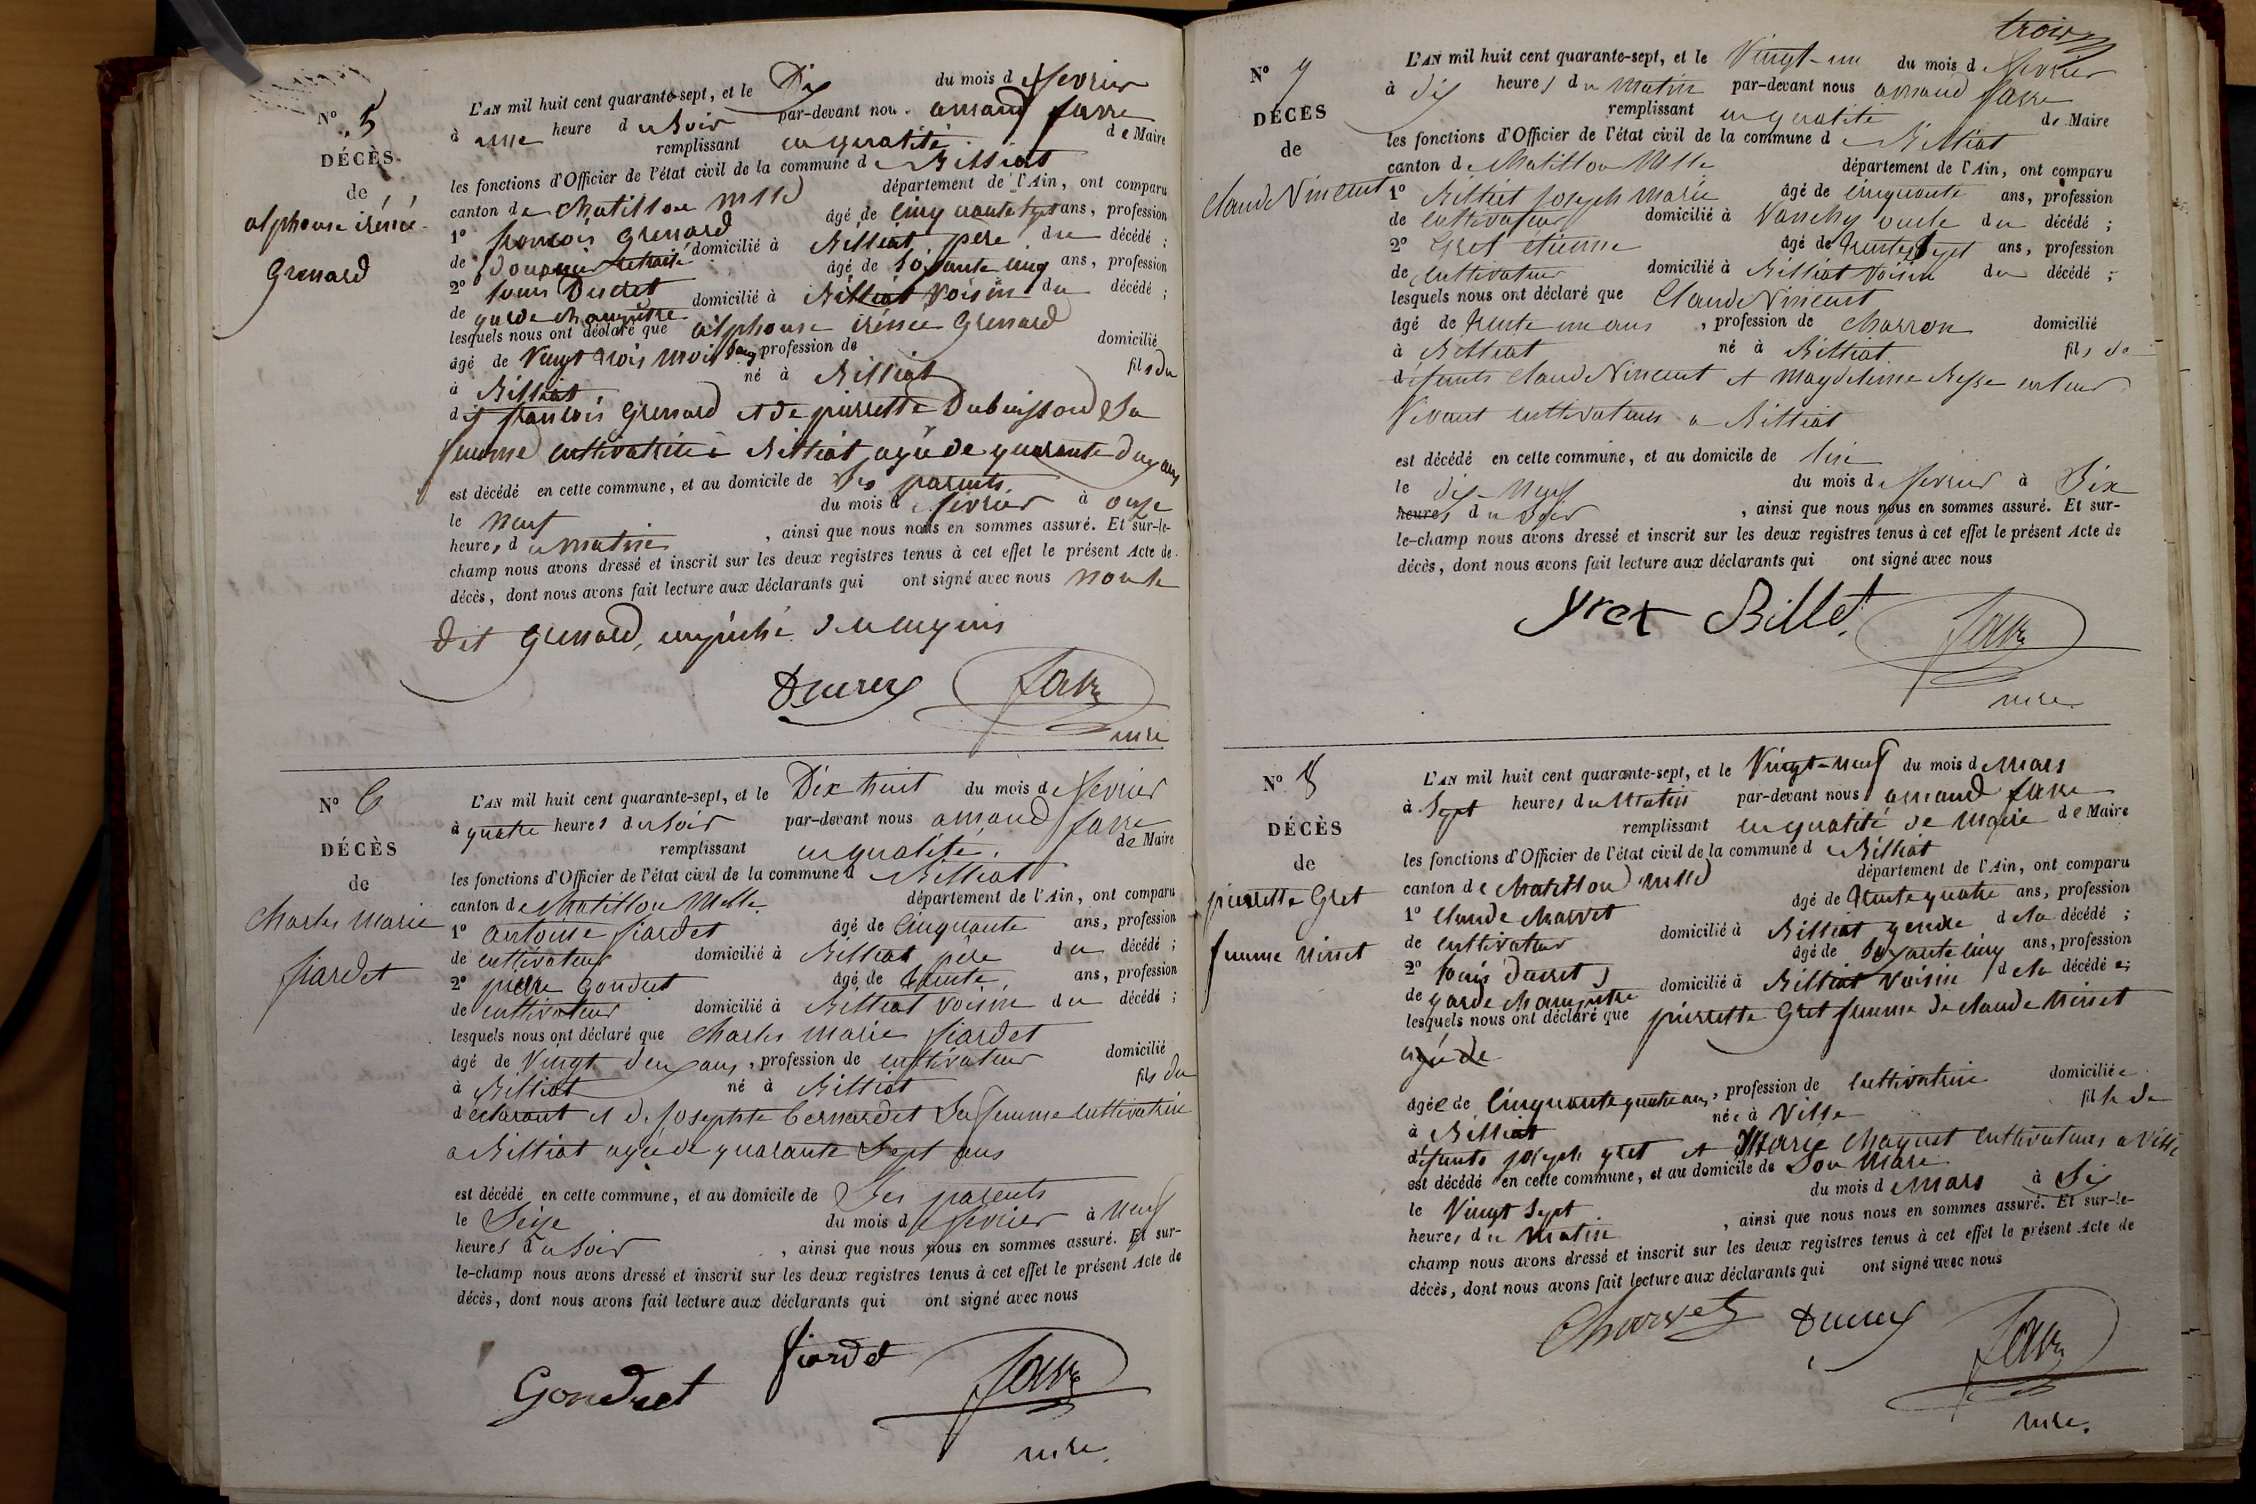 N° 5
DÉCÈS
de
alphonse irénée
Grenard
L'AN mil huit cent quarante-sept, et le Dix du mois de fevrier
à une heure du Soir par-devant nous armand favre
remplissant en qualité de Maire
les fonctions d'Officier de l'état civil de la commune de Billiat
canton de Chatillon département de l'Ain, ont comparu
1° françois Grenard âgé de Cinquante sept ans, profession
de douanier retraité domicilié à Billiat père du décédé ;
2° louis Ducret âgé de Soixante cinq ans, profession
de garde champêtre domicilié à Billiat voisin du décédé ;
lesquels nous ont déclaré que alphonse irénée Grenard
âgé de Vingt trois mois Sans profession de domicilié
à Billiat né à Billiat fils du
dit françois Grenard et de pierrette Dubuisson Sa
femme cultivatrice à Billiat agée de quarante deux ans
est décédé en cette commune, et au domicile de Ses parents
le neuf du mois de fevrier à onze
heures du matin , ainsi que nous nous en sommes assuré. Et sur-le-
champ nous avons dressé et inscrit sur les deux registres tenus à cet effet le présent Acte de
décès, dont nous avons fait lecture aux déclarants qui ont signé avec nous non le
dit Grenard, empêché
Ducret favre
mre
N° 6
DÉCÈS
de
Charles Marie
fiardet
L'AN mil huit cent quarante-sept, et le Dix huit du mois de fevrier
à quatre heures du Soir par-devant nous armand favre
remplissant en qualité de Maire
les fonctions d'Officier de l'état civil de la commune d Billiat
canton de Chatillon département de l'Ain, ont comparu
1° antoine fiardet âgé de Cinquante ans, profession
de cultivateur domicilié à Billiat père du décédé ;
2° pierre Gondret âgé de trente ans, profession
de cultivateur domicilié à Billiat voisin du décédé ;
lesquels nous ont déclaré que Charles Marie fiardet
âgé de Vingt deux ans, profession de cultivateur domicilié
à Billiat né à Billiat fils du
déclarant et de Josephte Bernardet Sa femme cultivatrice
a Billiat agée de quarante Sept ans
est décédé en cette commune, et au domicile de Ses parents
le Seize du mois de fevrier à neuf
heures du Soir , ainsi que nous nous en sommes assuré. Et sur-
le-champ nous avons dressé et inscrit sur les deux registres tenus à cet effet le présent Acte de
décès, dont nous avons fait lecture aux déclarants qui ont signé avec nous
Gondret fiardet favre
mre.
trois
N° 7
DÉCÈS
de
Claude Vincent
L'AN mil huit cent quarante-sept, et le Vingt-un du mois de fevrier
à dix heures du Matin par-devant nous armand favre
remplissant en qualité de Maire
les fonctions d'Officier de l'état civil de la commune de Billiat
canton de Chatillon département de l'Ain, ont comparu
1° Billet Joseph Marie âgé de Cinquante ans, profession
de cultivateur domicilié à Vanchy oncle du décédé ;
2° Gret étienne âgé de trente Sept ans, profession
de cultivateur domicilié à Billiat voisin du décédé ;
lesquels nous ont déclaré que Claude Vincent
âgé de trente un ans, profession de charron domicilié
à Billiat né à Billiat fils de
défunts Claude Vincent et Magdeleine Besse en leur
Vivant cultivateurs a Billiat
est décédé en cette commune, et au domicile de
le dix-neuf du mois de fevrier à Dix
heures du Soir , ainsi que nous nous en sommes assuré. Et sur-
le-champ nous avons dressé et inscrit sur les deux registres tenus à cet effet le présent Acte de
décès, dont nous avons fait lecture aux déclarants qui ont signé avec nous
Gret Billet favre
mre.
N° 8
DÉCÈS
de
pierrette Gret
femme
L'AN mil huit cent quarante-sept, et le Vingt-neuf du mois de Mars
à Sept heures du Matin par-devant nous armand favre
remplissant en qualité de Maire de Maire
les fonctions d'Officier de l'état civil de la commune de Billiat
canton de Chatillon département de l'Ain, ont comparu
1° Claude Charvet âgé de trente quatre ans, profession
de cultivateur domicilié à Billiat gendre de la décédé ;
2° louis Ducret âgé de Soixante cinq ans, profession
de garde champetre domicilié à Billiat voisin de la décédée ;
lesquels nous ont déclaré que pierrette Gret femme de claude
agée de
âgée de Cinquante quatre ans, profession de cultivatrice domiciliée
à Billiat née à Ville fille de
défunts Joseph gret et Marie cultivateurs a Ville
est décédé en cette commune, et au domicile de Son Mari
le Vingt Sept du mois de Mars à Six
heures du Matin , ainsi que nous nous en sommes assuré. Et sur-le-
champ nous avons dressé et inscrit sur les deux registres tenus à cet effet le présent Acte de
décès, dont nous avons fait lecture aux déclarants qui ont signé avec nous
Charvet Ducret favre
mre.